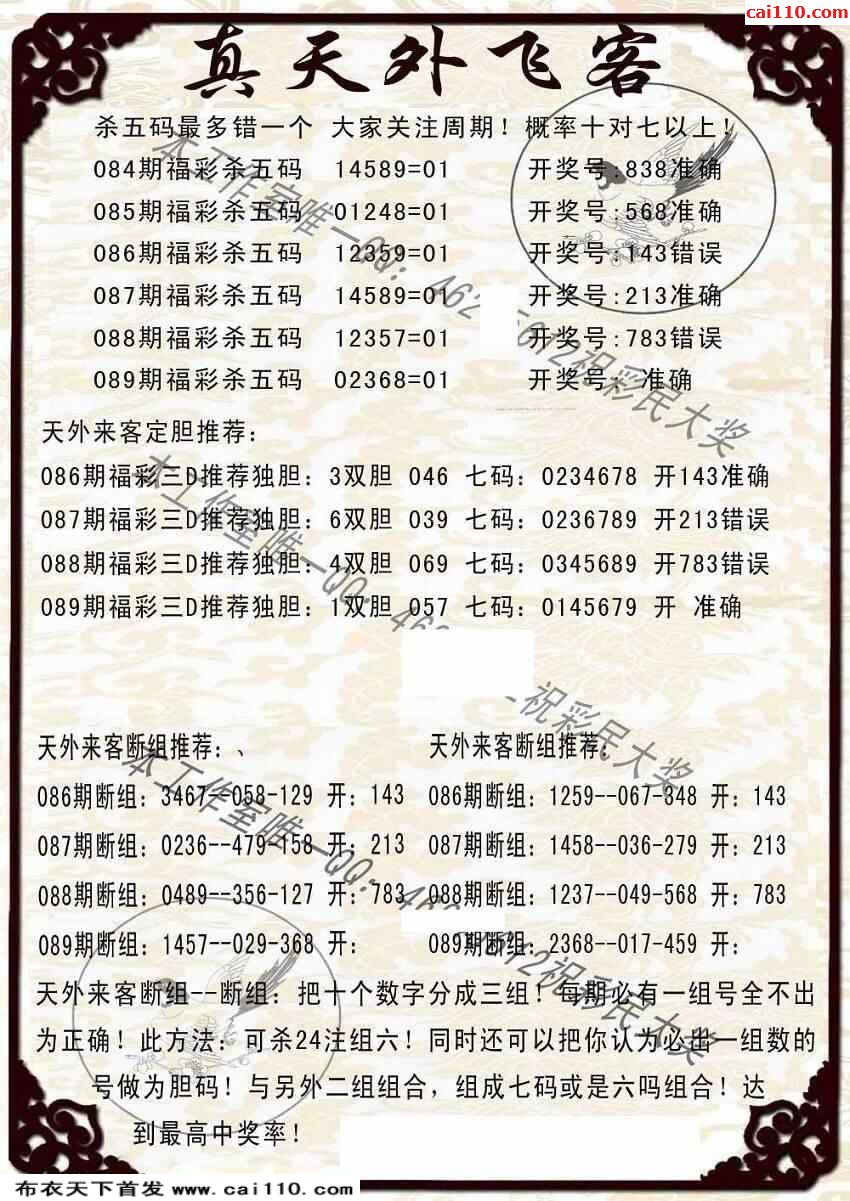 cai110.com
真天外飞客
杀五码最多错一个 大家关注周期！概率十对七以上！
084期福彩杀五码 14589=01 开奖号:838准确
085期福彩杀五码 01248=01 开奖号:568准确
086期福彩杀五码 12359=01 开奖号:143错误
087期福彩杀五码 14589=01 开奖号:213准确
088期福彩杀五码 12357=01 开奖号:783错误
089期福彩杀五码 02368=01 开奖号: 准确
天外来客定胆推荐：
086期福彩三D推荐独胆：3双胆 046 七码：0234678 开143准确
087期福彩三D推荐独胆：6双胆 039 七码：0236789 开213错误
088期福彩三D推荐独胆：4双胆 069 七码：0345689 开783错误
089期福彩三D推荐独胆：1双胆 057 七码：0145679 开 准确
天外来客断组推荐：、 天外来客断组推荐：
086期断组：3467--058-129 开：143 086期断组：1259--067-348 开：143
087期断组：0236--479-158 开：213 087期断组：1458--036-279 开：213
088期断组：0489--356-127 开：783 088期断组：1237--049-568 开：783
089期断组：1457--029-368 开： 089期断组：2368--017-459 开：
天外来客断组--断组：把十个数字分成三组！每期必有一组号全不出
为正确！此方法：可杀24注组六！同时还可以把你认为必出一组数的
号做为胆码！与另外二组组合，组成七码或是六吗组合！达
到最高中奖率！
本工作室唯一QQ：462 612祝彩民大奖
本工作室唯一QQ：462 祝彩民大奖
本工作室唯一QQ：462 612祝彩民大奖
布衣天下首发 www.cai110.com